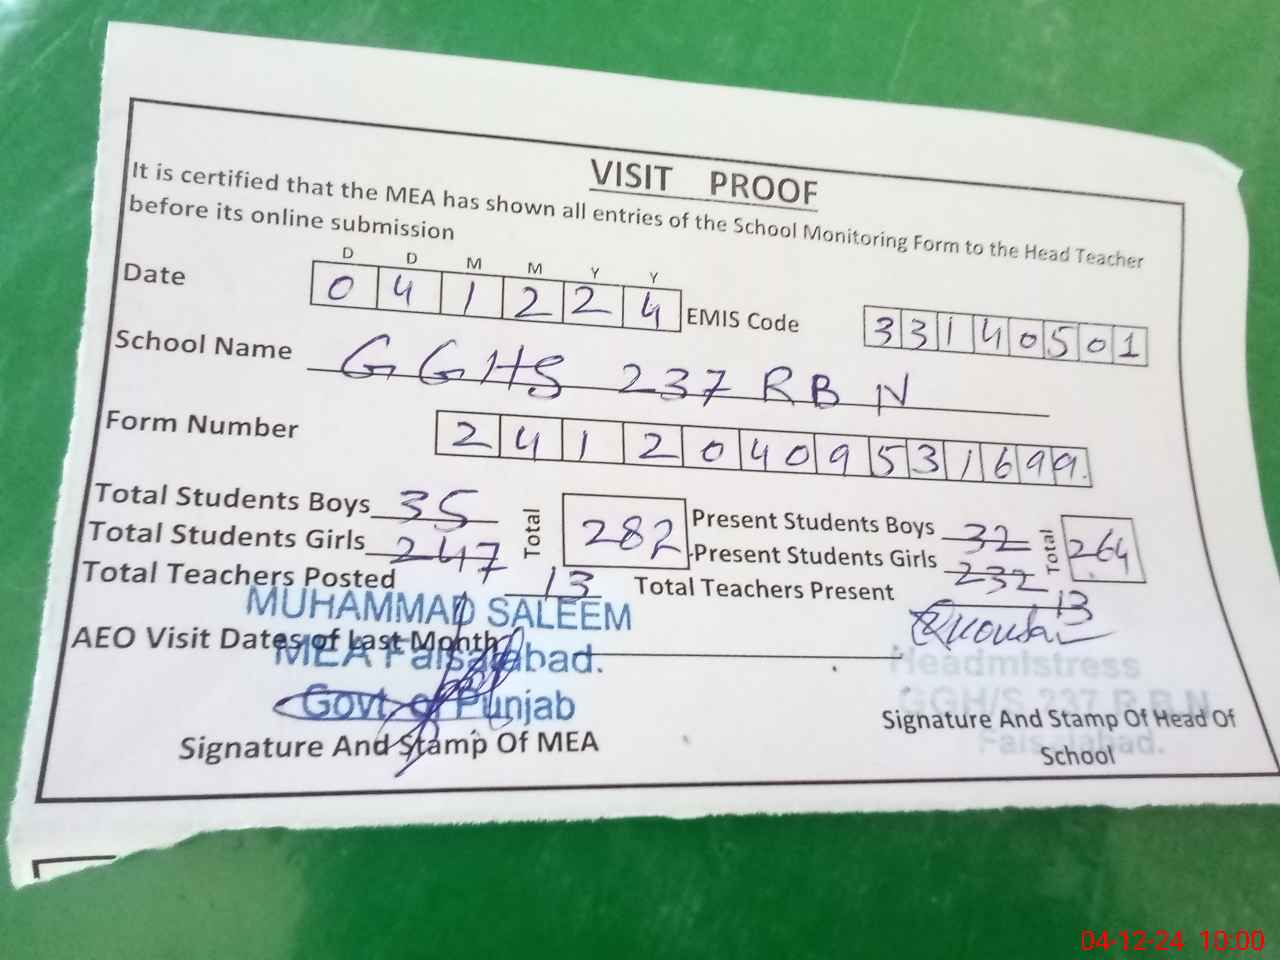 VISIT PROOF
It is certified that the MEA has shown all entries of the School Monitoring Form to the Head Teacher
before its online submission
D D M M Y Y
Date 0 4 1 2 2 4 EMIS Code 3 3 1 4 0 5 0 1
School Name GGHS 237 RB N
Form Number 2 4 1 2 0 4 0 9 5 3 1 6 9 9
Total Students Boys 35 Total 282 Present Students Boys 32 Total 264
Total Students Girls 247 Present Students Girls 232
Total Teachers Posted 13 Total Teachers Present 13
MUHAMMAD SALEEM
AEO Visit Dates of Last Month
MEA Faisalabad.
Headmistress
Govt. of Punjab
GGH/S 237 R.B.N
Signature And Stamp Of MEA
Signature And Stamp Of Head Of
Faisalabad.
School
04-12-24 10:00